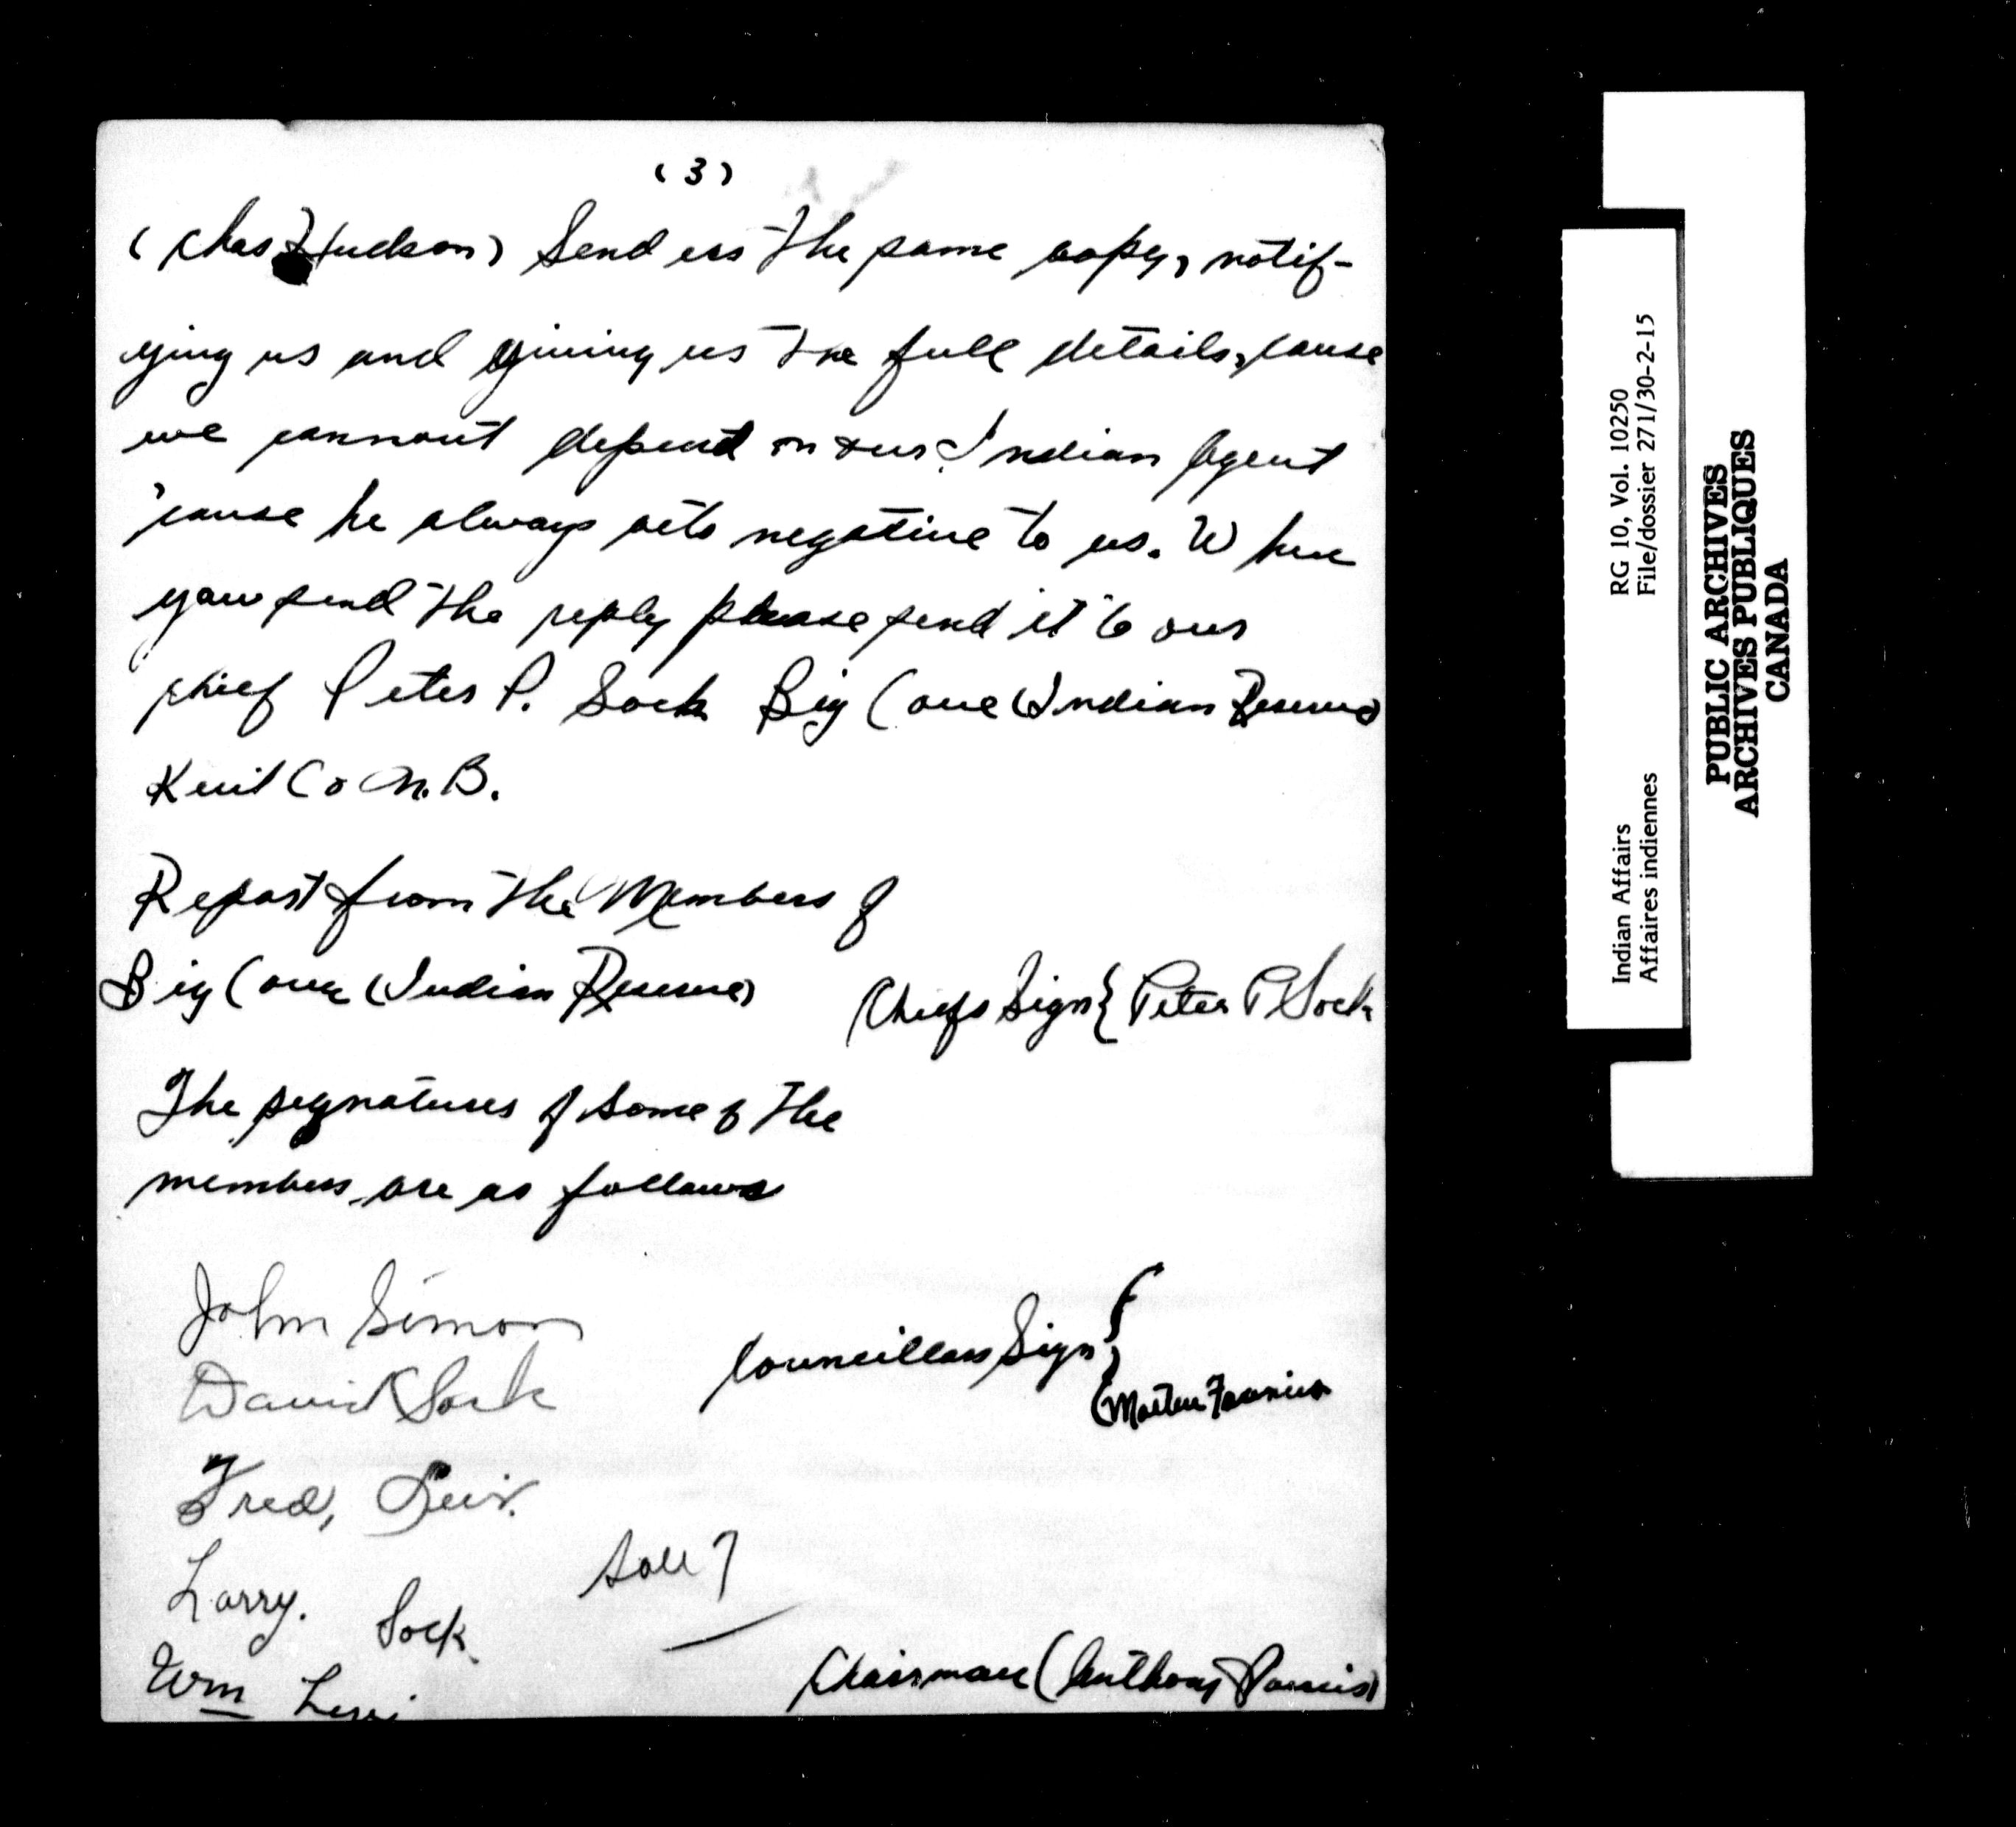 (3)
(Chas Hudson) Send us the same copy, notif-
ying us and giving us the full details, cause
we cannout depend on our Indian Agent
'cause he always acts negative to us. When
you send the reply please send it to our
chief Peter P. Sock Big Cove Indian Reserve
Kent Co N.B.
Report from the Members of
Big Cove Indian Reserve
Chiefs Sign { Peter P Sock
The signatures of some of the
members are as follows
John Simon
David Sock
Councillors Sign {
Fred, Levi.
Larry. Sock
Wm Levi
Chairman (Anthony Francis)
RG 10, Vol. 10250
File/dossier 271/30-2-15
Indian Affairs
Affaires indiennes
PUBLIC ARCHIVES
ARCHIVES PUBLIQUES
CANADA